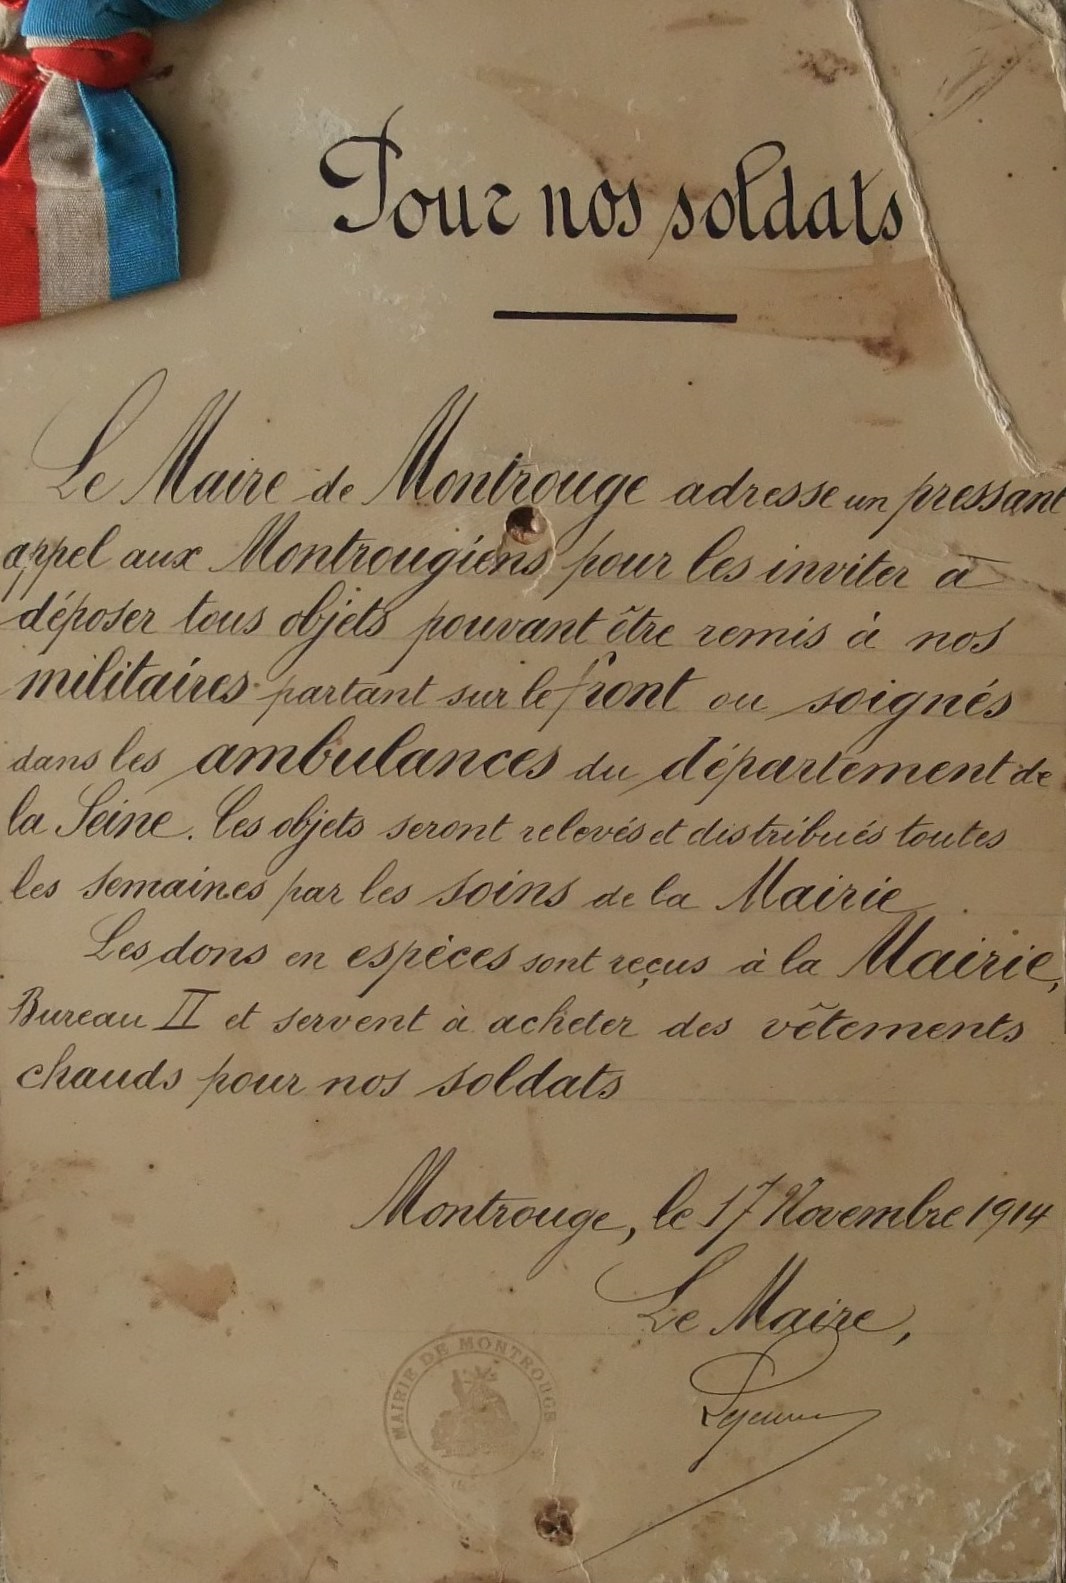 Pour nos soldats
Le Maire de Montrouge adresse un pressant
appel aux Montrougiens pour les inviter à
déposer tous objets pouvant être remis à nos
militaires partant sur le front ou soignés
dans les ambulances du département de
la Seine. Ces objets seront relevés et distribués toutes
les semaines par les soins de la Mairie.
Les dons en espèces sont reçus à la Mairie,
Bureau II et servent à acheter des vêtements
chauds pour nos soldats
Montrouge, le 17 Novembre 1914
Le Maire,
Lejeune
MAIRIE DE MONTROUGE